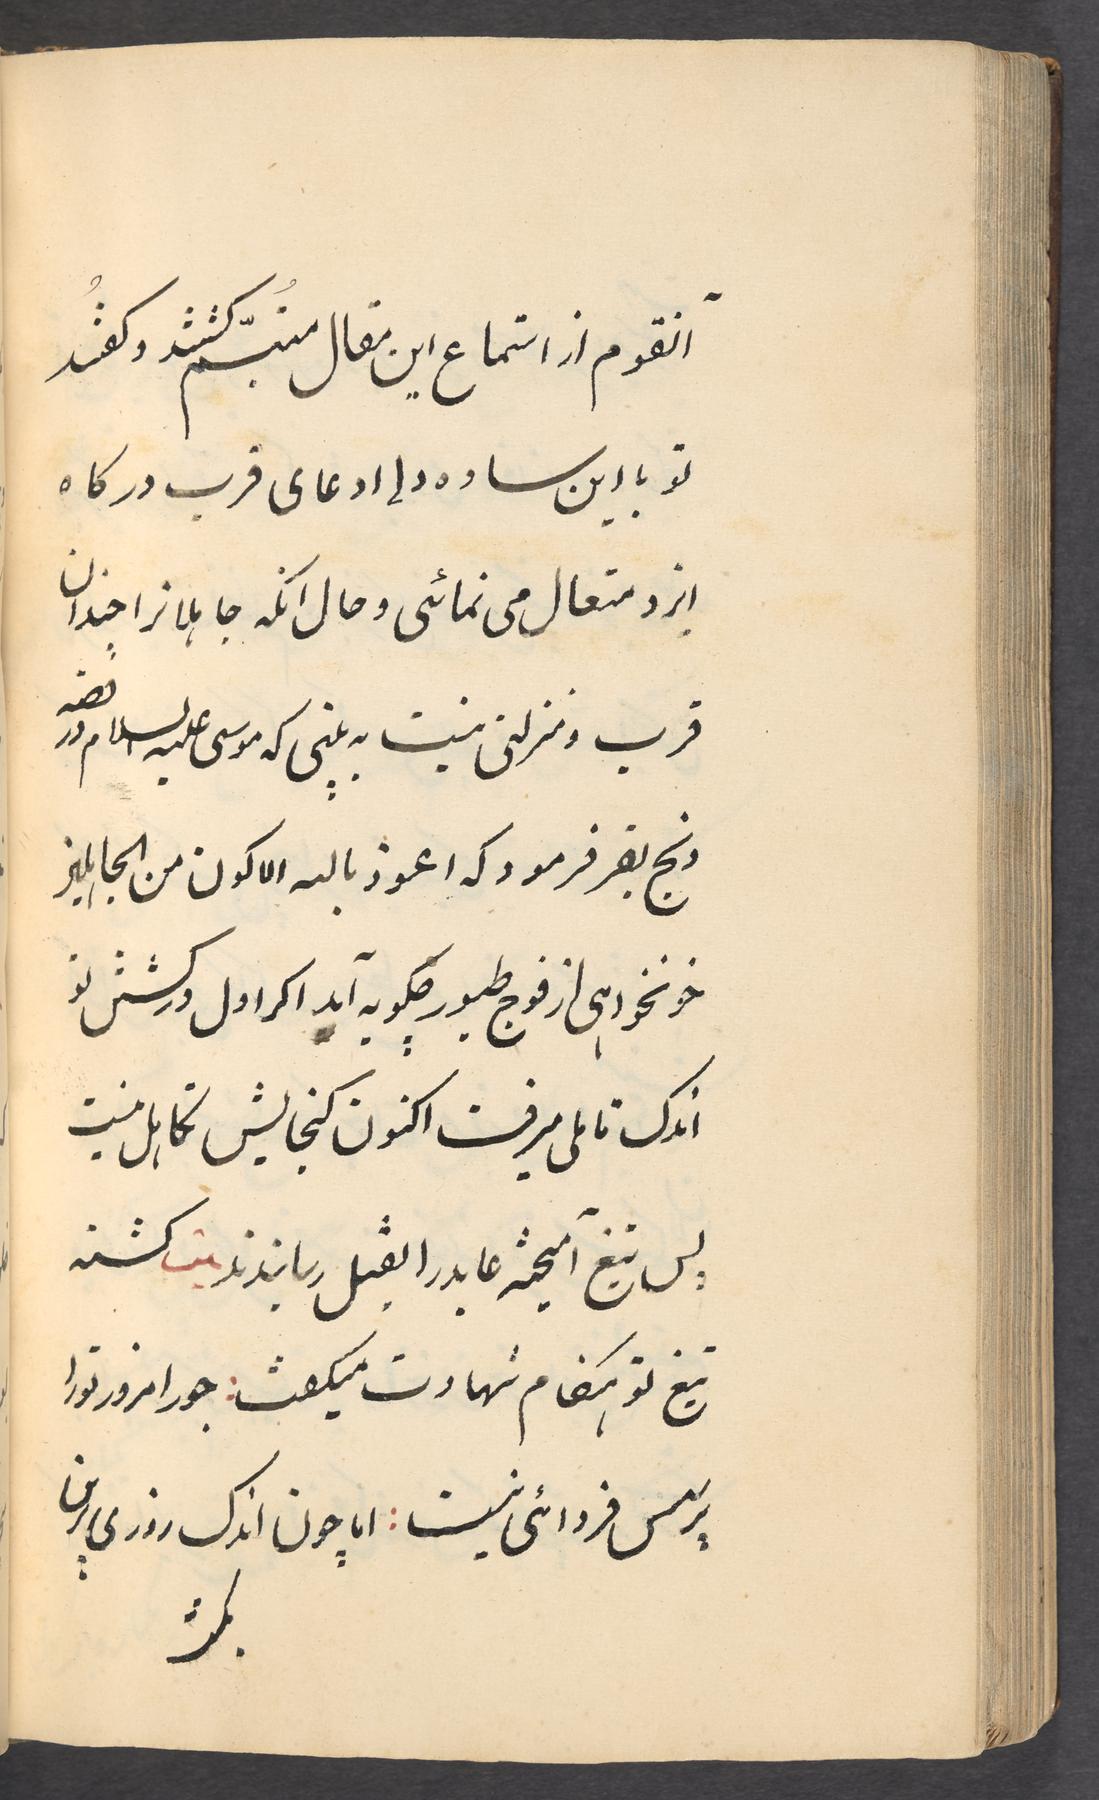 آنقوم از استماع این مقال متبسّم کشتند و کفتند
تو با این ساده دلی ادعای قرب درکاه
ایزد متعال می نمائی و حال آنکه جاهلانرا چندان
قرب و منزلتی نیست به بینی که موسی علیه السلام در قصه
ذبح بقر فرمود که اعوذ بالله ان اکون من الجاهلین
خونخواهی از فوج طیور چکونه آید اکر اول در کشتن تو
اندک تاملی میرفت اکنون کنجایش تکاهل نیست
پس تیغ آمیخته عابد را بقتل رسانیدند بیت کشته
تیغ تو هنکام شهادت میکفت : جور امروز تو را
پرسش فردائی نیست : اما چون اندک روزی برین
بکذشت